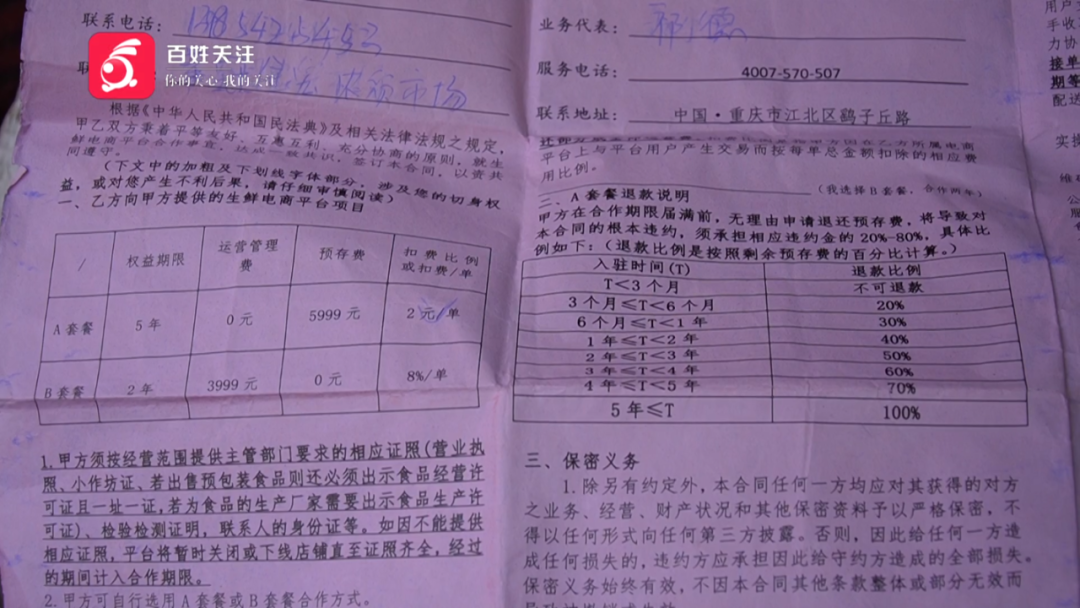 联系电话：
百姓关注
你的关心 我的关注
农贸市场
根据《中华人民共和国民法典》及相关法律法规之规定，
甲乙双方秉着平等友好、互惠互利、充分协商的原则，就生
鲜电商平台合作事宜，达成一致共识，签订本合同，以资共
同遵守。
（下文中的加粗及下划线字体部分，涉及您的切身权
益，或对您产生不利后果，请仔细审慎阅读）
一、乙方向甲方提供的生鲜电商平台项目
/ 权益期限 运营管理费 预存费 扣费比例或扣费/单
A套餐 5年 0元 5999元 2元/单
B套餐 2年 3999元 0元 8%/单
1.甲方须按经营范围提供主管部门要求的相应证照(营业执
照、小作坊证、若出售预包装食品则还必须出示食品经营许
可证且一址一证,若为食品的生产厂家需要出示食品生产许
可证)、检验检测证明，联系人的身份证等。如因不能提供
相应证照,平台将暂时关闭或下线店铺直至证照齐全,经过
的期间计入合作期限。
2.甲方可自行选用A套餐或B套餐合作方式。
业务代表：
服务电话： 4007-570-507
联系地址： 中国·重庆市江北区鹞子丘路
平台上与平台用户产生交易而按每单总金额扣除的相应费
用比例。
（我选择B套餐，合作两年）
二、A套餐退款说明
甲方在合作期限届满前，无理由申请退还预存费，将导致对
本合同的根本违约，须承担相应违约金的20%-80%，具体比
例如下：（退款比例是按照剩余预存费的百分比计算。）
入驻时间(T) 退款比例
T<3个月 不可退款
3个月≤T<6个月 20%
6个月≤T<1年 30%
1年≤T<2年 40%
2年≤T<3年 50%
3年≤T<4年 60%
4年≤T<5年 70%
5年≤T 100%
三、保密义务
1.除另有约定外，本合同任何一方均应对其获得的对方
之业务、经营、财产状况和其他保密资料予以严格保密，不
得以任何形式向任何第三方披露。否则，因此给任何一方造
成任何损失的，违约方应承担因此给守约方造成的全部损失。
保密义务始终有效，不因本合同其他条款整体或部分无效而
用户
手收
力协
接单
期等
配送
实操
维
公
服